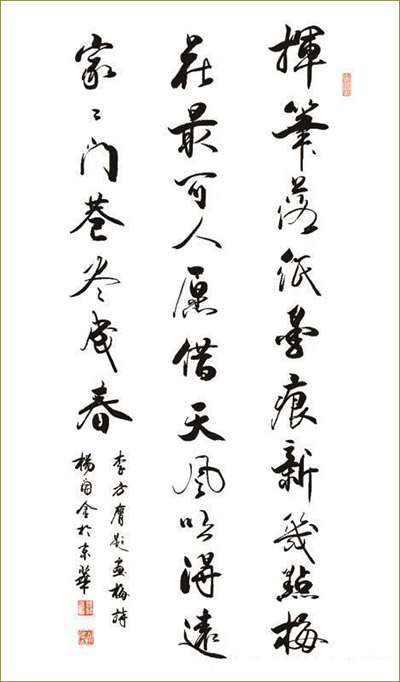 揮筆落紙墨痕新幾點梅
花最可人愿借天風吹得遠
家〻门巷尽成春
李方膺题画梅詩
楊於京華